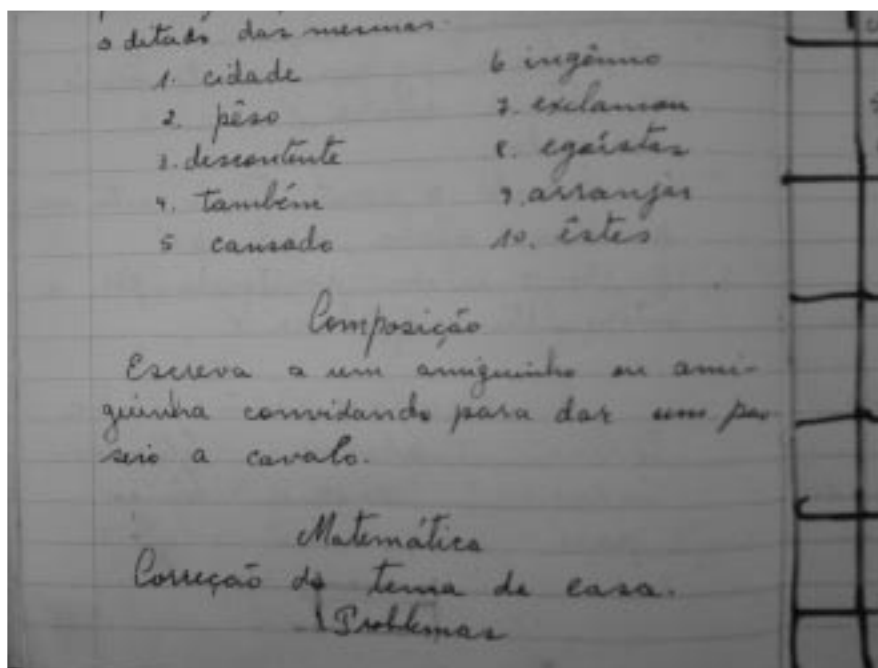 o ditado das mesmas.
1. cidade
2. pêso
3. descontente
4. também
5 cansado
6 ingênuo
7. exclamou
8. egoístas
9. arranjar
10. êstes
Composição
Escreva a um amiguinho ou ami-
guinha convidando para dar um pas
seio a cavalo.
Matemática
Correção do tema de casa.
Problemas